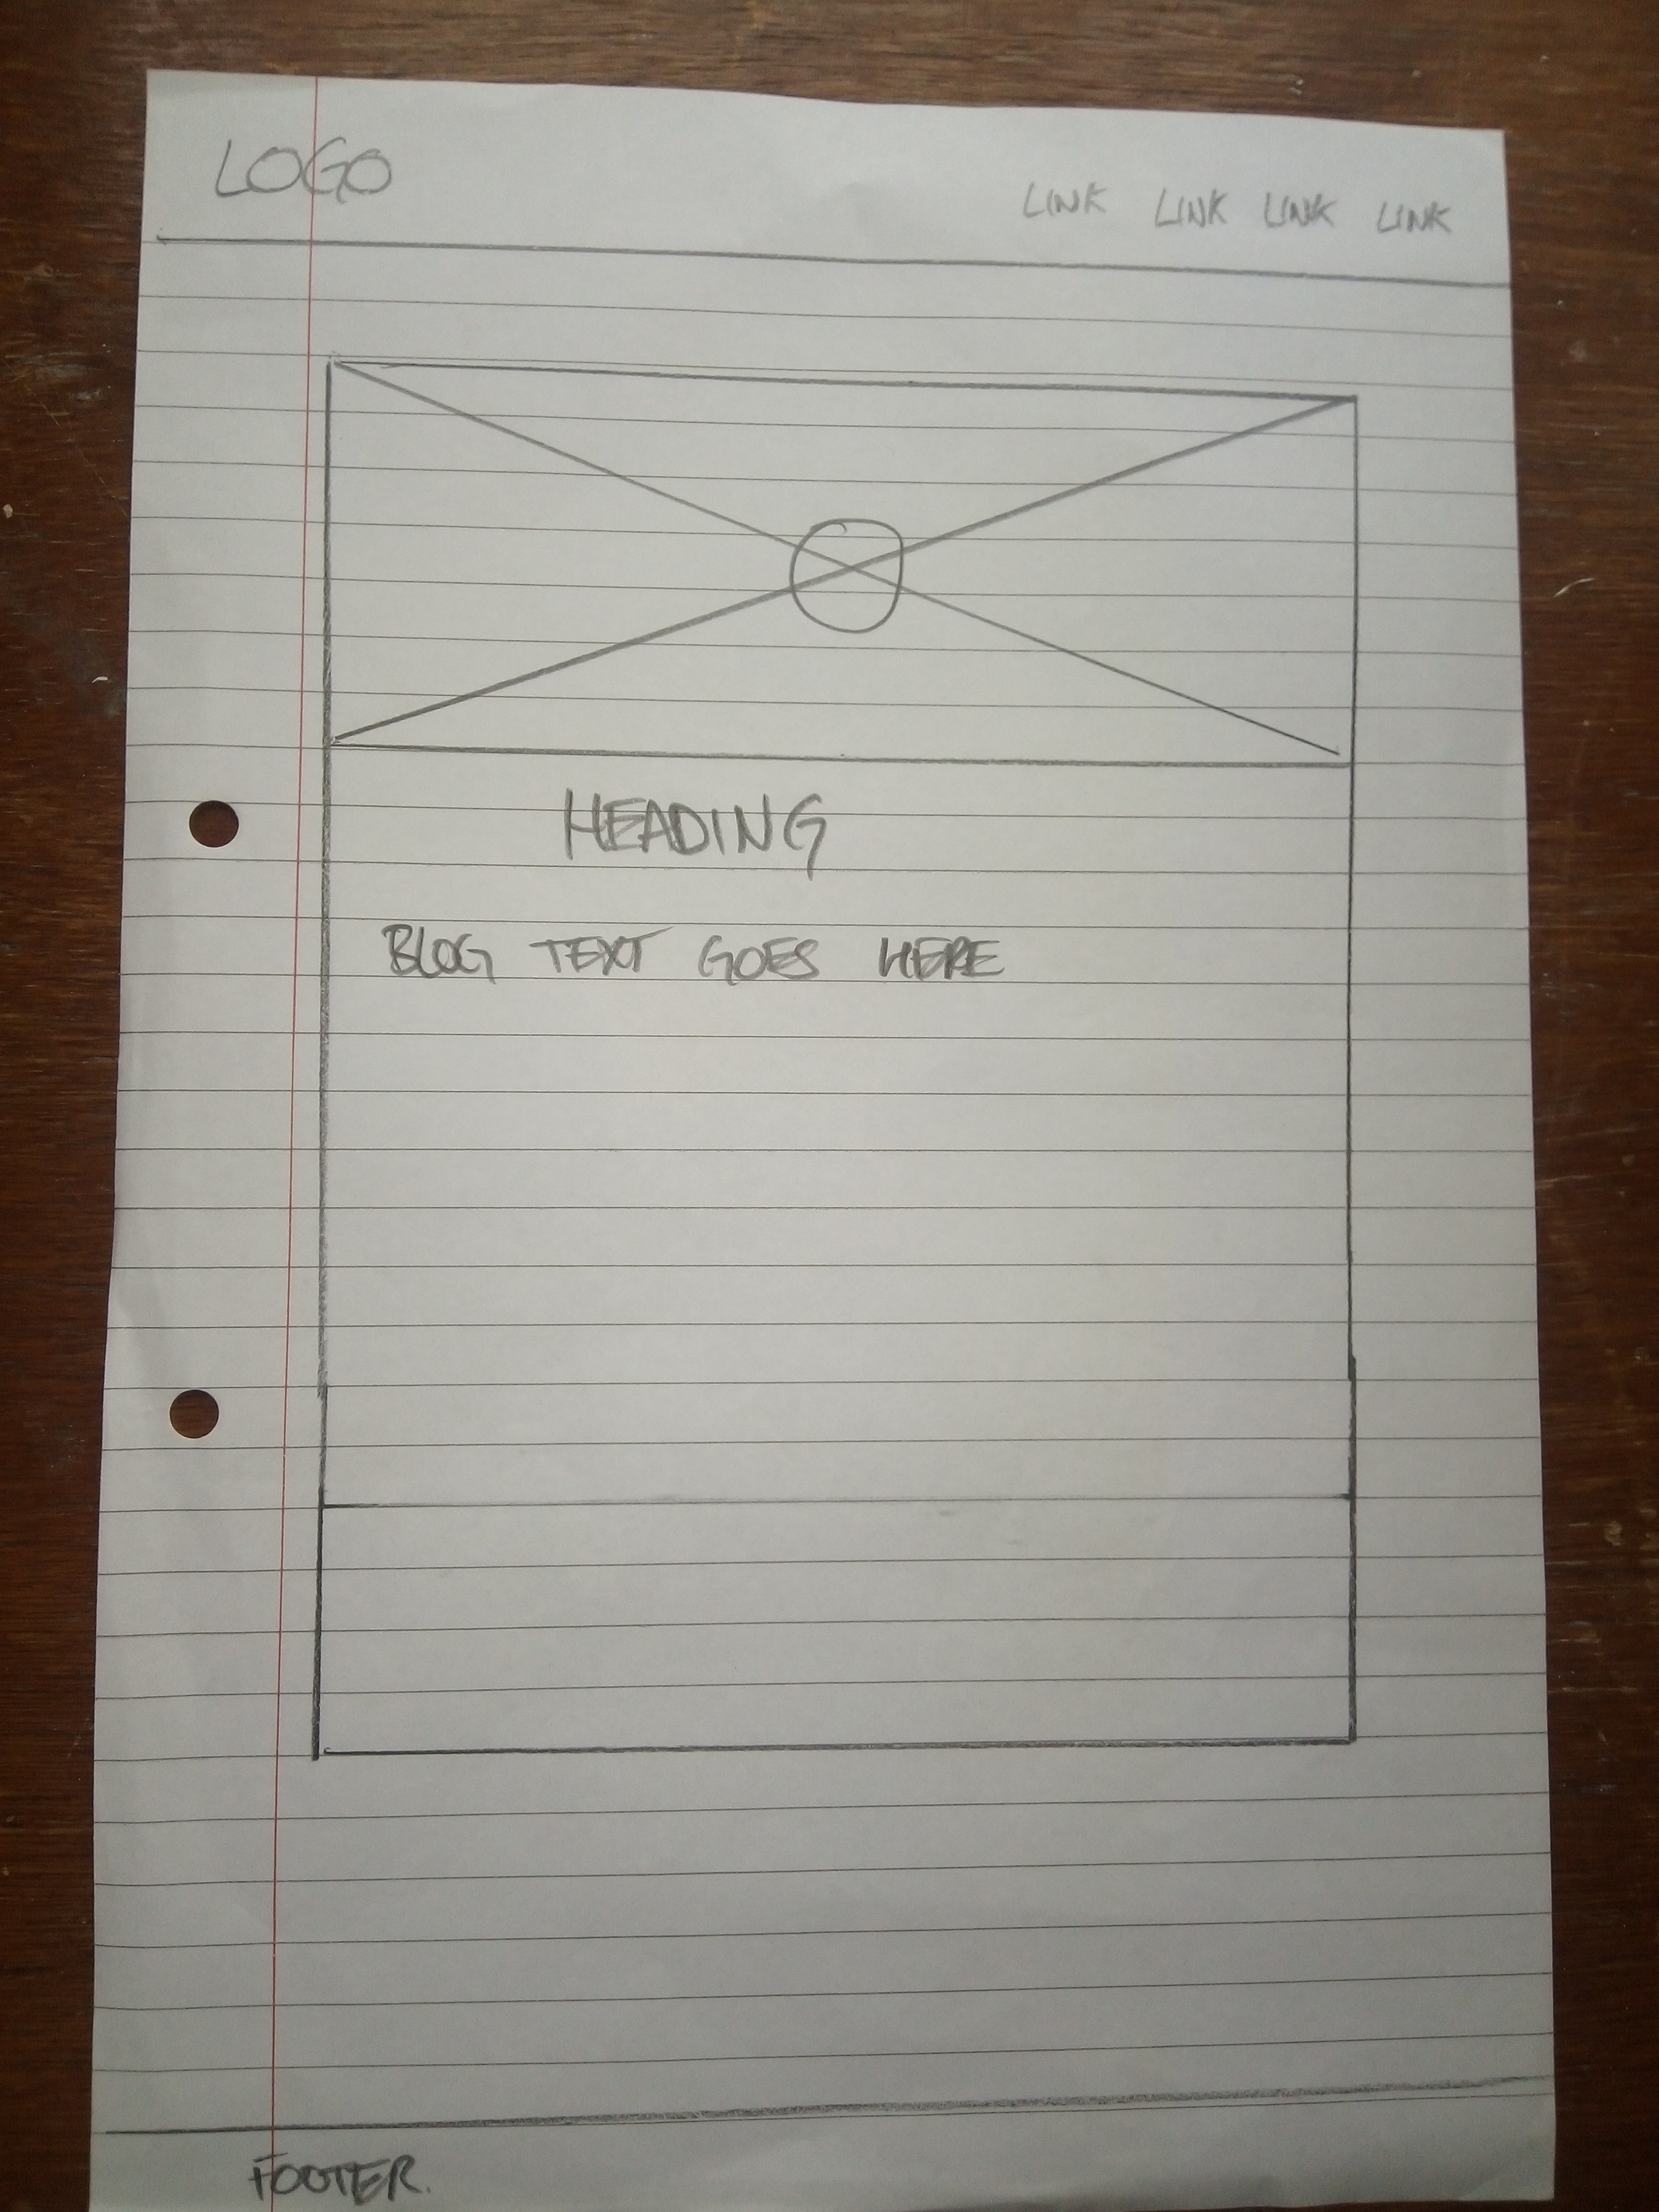 LOGO
LINK LINK LINK LINK
HEADING
BLOG TEXT GOES HERE
FOOTER.